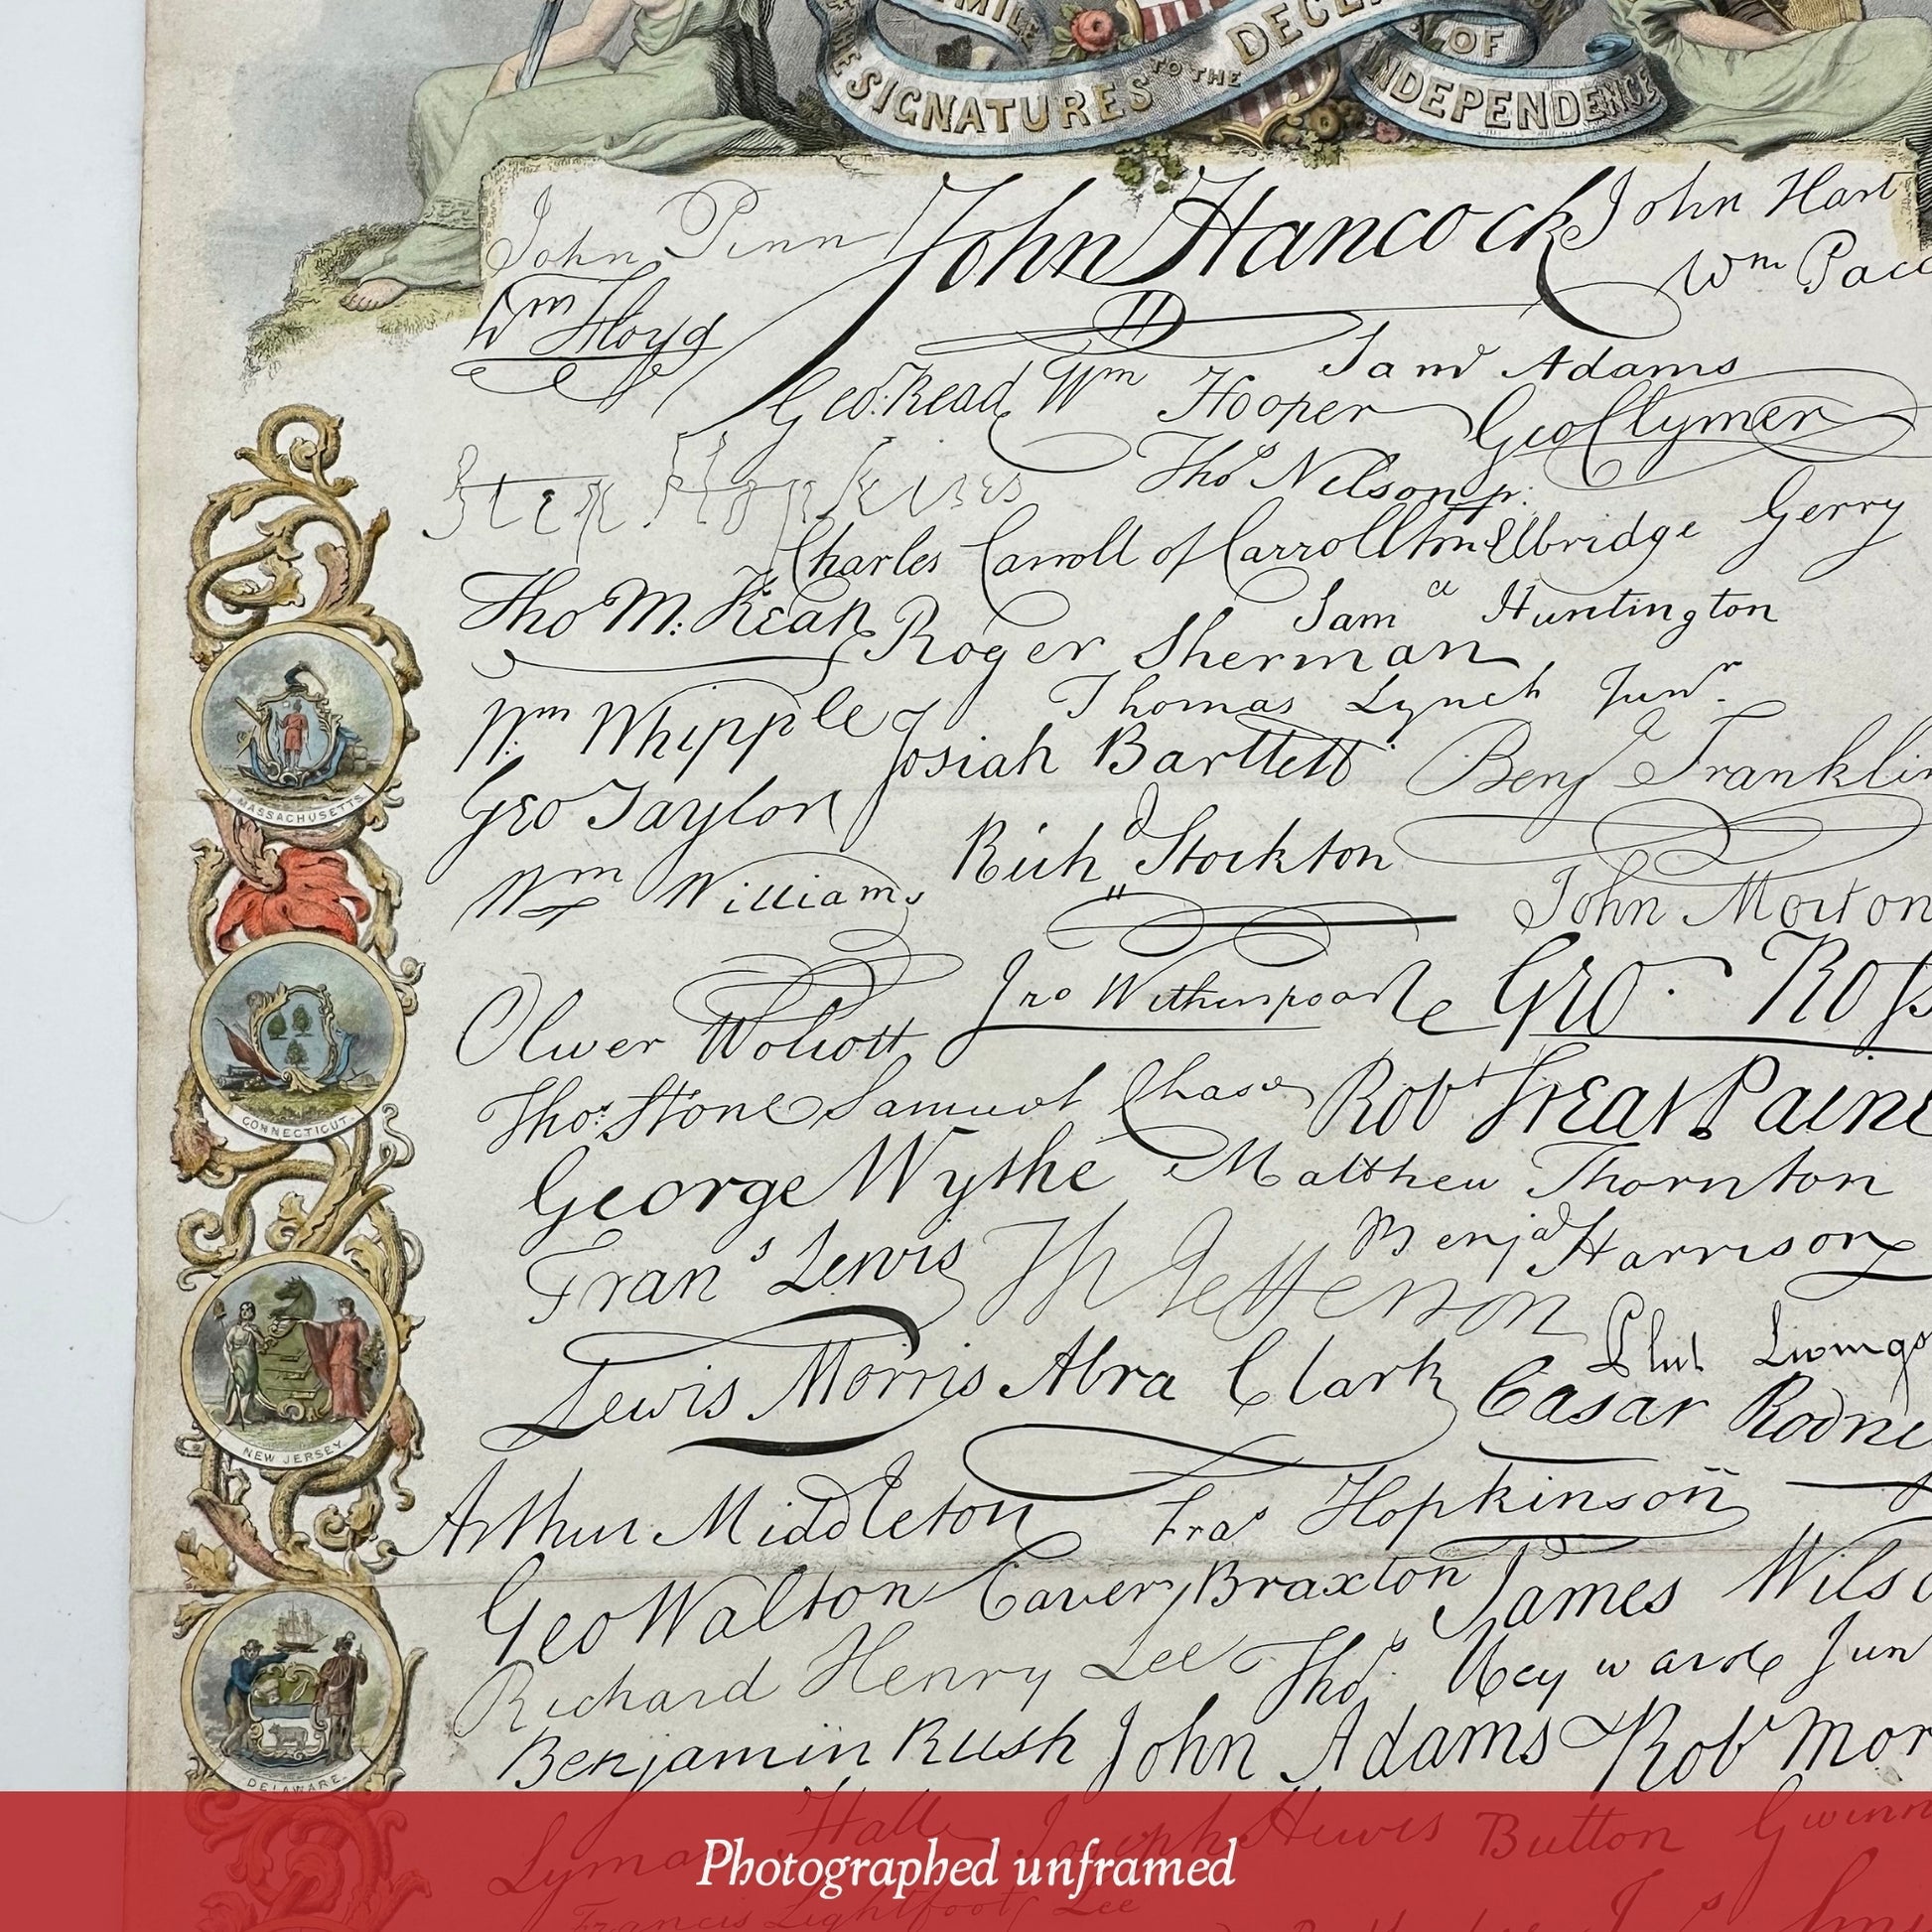 SIMILE
OF THE
SIGNATURES TO THE DECL
OF
INDEPENDENCE
John Penn John Hancock John Hart
Wm Paca
Wm Floyd
Saml Adams
Geo: Read Wm Hooper Geo Clymer
Step Hopkins Thos Nelson jr.
Charles Carroll of Carrollton Elbridge Gerry
Tho M: Kean Saml Huntington
Roger Sherman
Wm Whipple Thomas Lynch Junr.
Josiah Bartlett Benj Franklin
Geo Taylor
Richd Stockton
Wm Williams John Morton
Oliver Wolcott Jno Witherspoon Geo. Ross
Thos. Stone Samuel Chase Robt Treat Paine
George Wythe Matthew Thornton
Frans Lewis Th Jefferson Benja Harrison
Lewis Morris Abra Clark Phil Livings
Cæsar Rodne
Arthur Middleton Fras Hopkinson
Geo Walton Carter Braxton James Wilso
Richard Henry Lee Thos. Heyward Jun
Benjamin Rush John Adams Robt Mor
Lyman Hall Joseph Hewes Button Gwinn
Francis Lightfoot Lee
MASSACHUSETTS
CONNECTICUT
NEW JERSEY
DELAWARE.
Photographed unframed